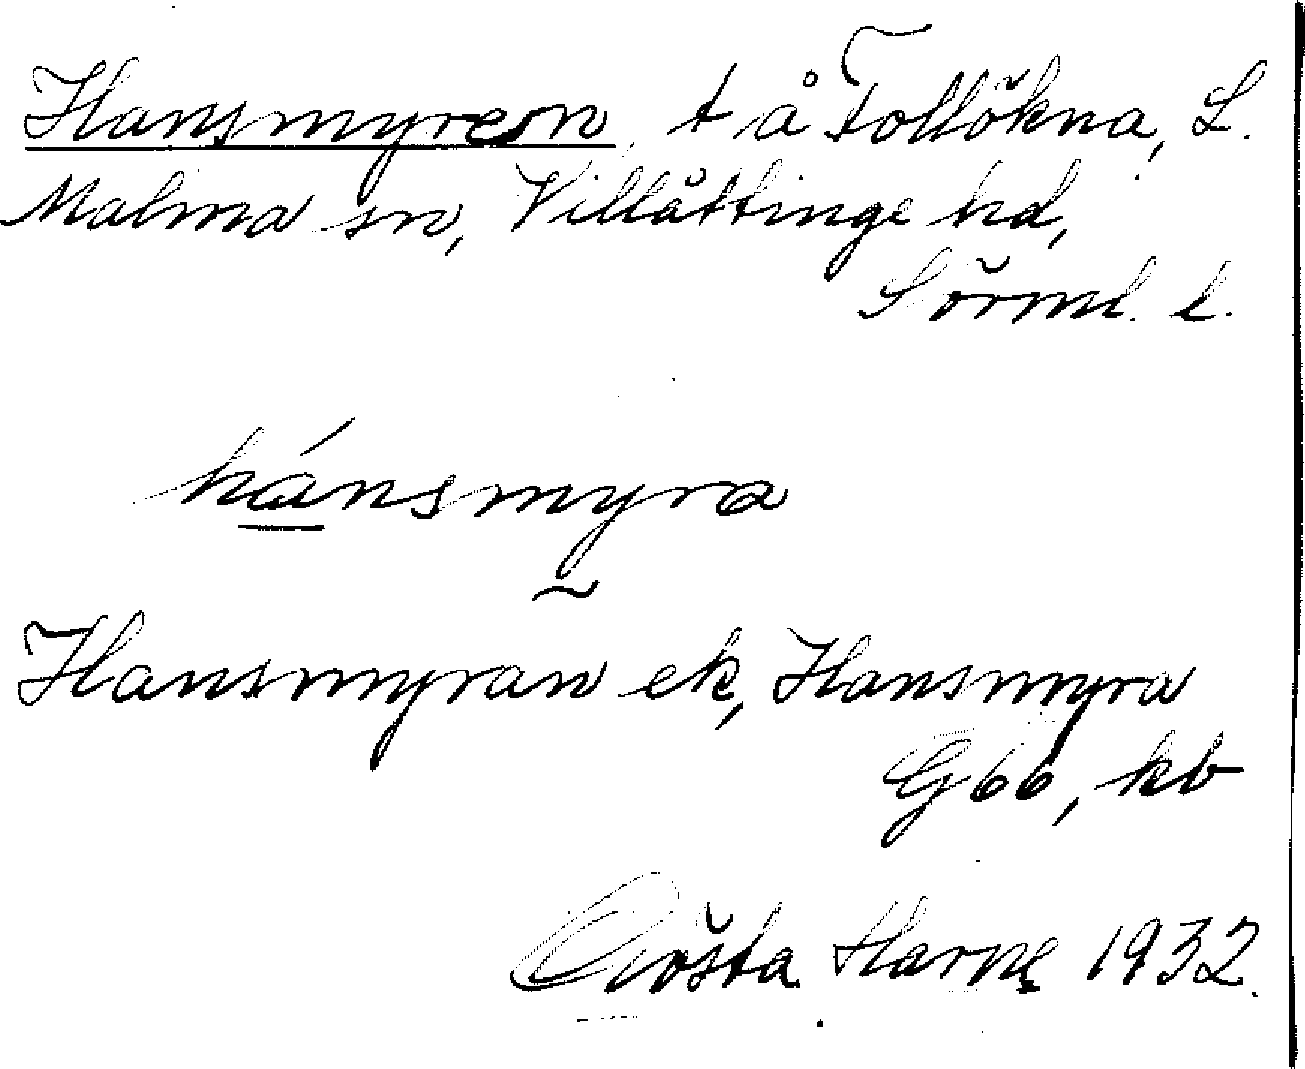 Hansmyren, t å Tollökna, L.
Malma sn, Villåttinge hd,
Sörml. l.
hánsmyra
Hansmyran ek, Hansmyra
G66, kb
Gösta Harne 1932.